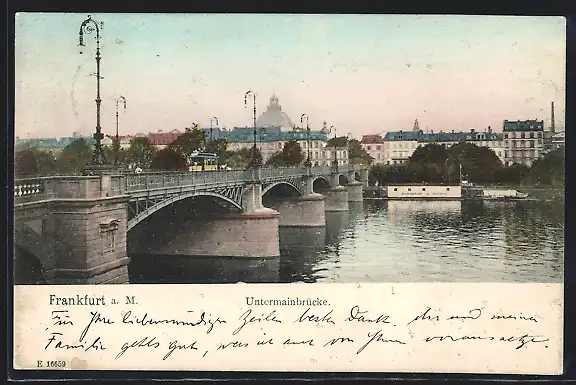 Frankfurt a. M. Untermainbrücke.
Für Ihre liebenswürdigen Zeilen besten Dank. Mir und meiner
Familie gehts gut, was ich auch von Ihnen voraussetze.
E 16659